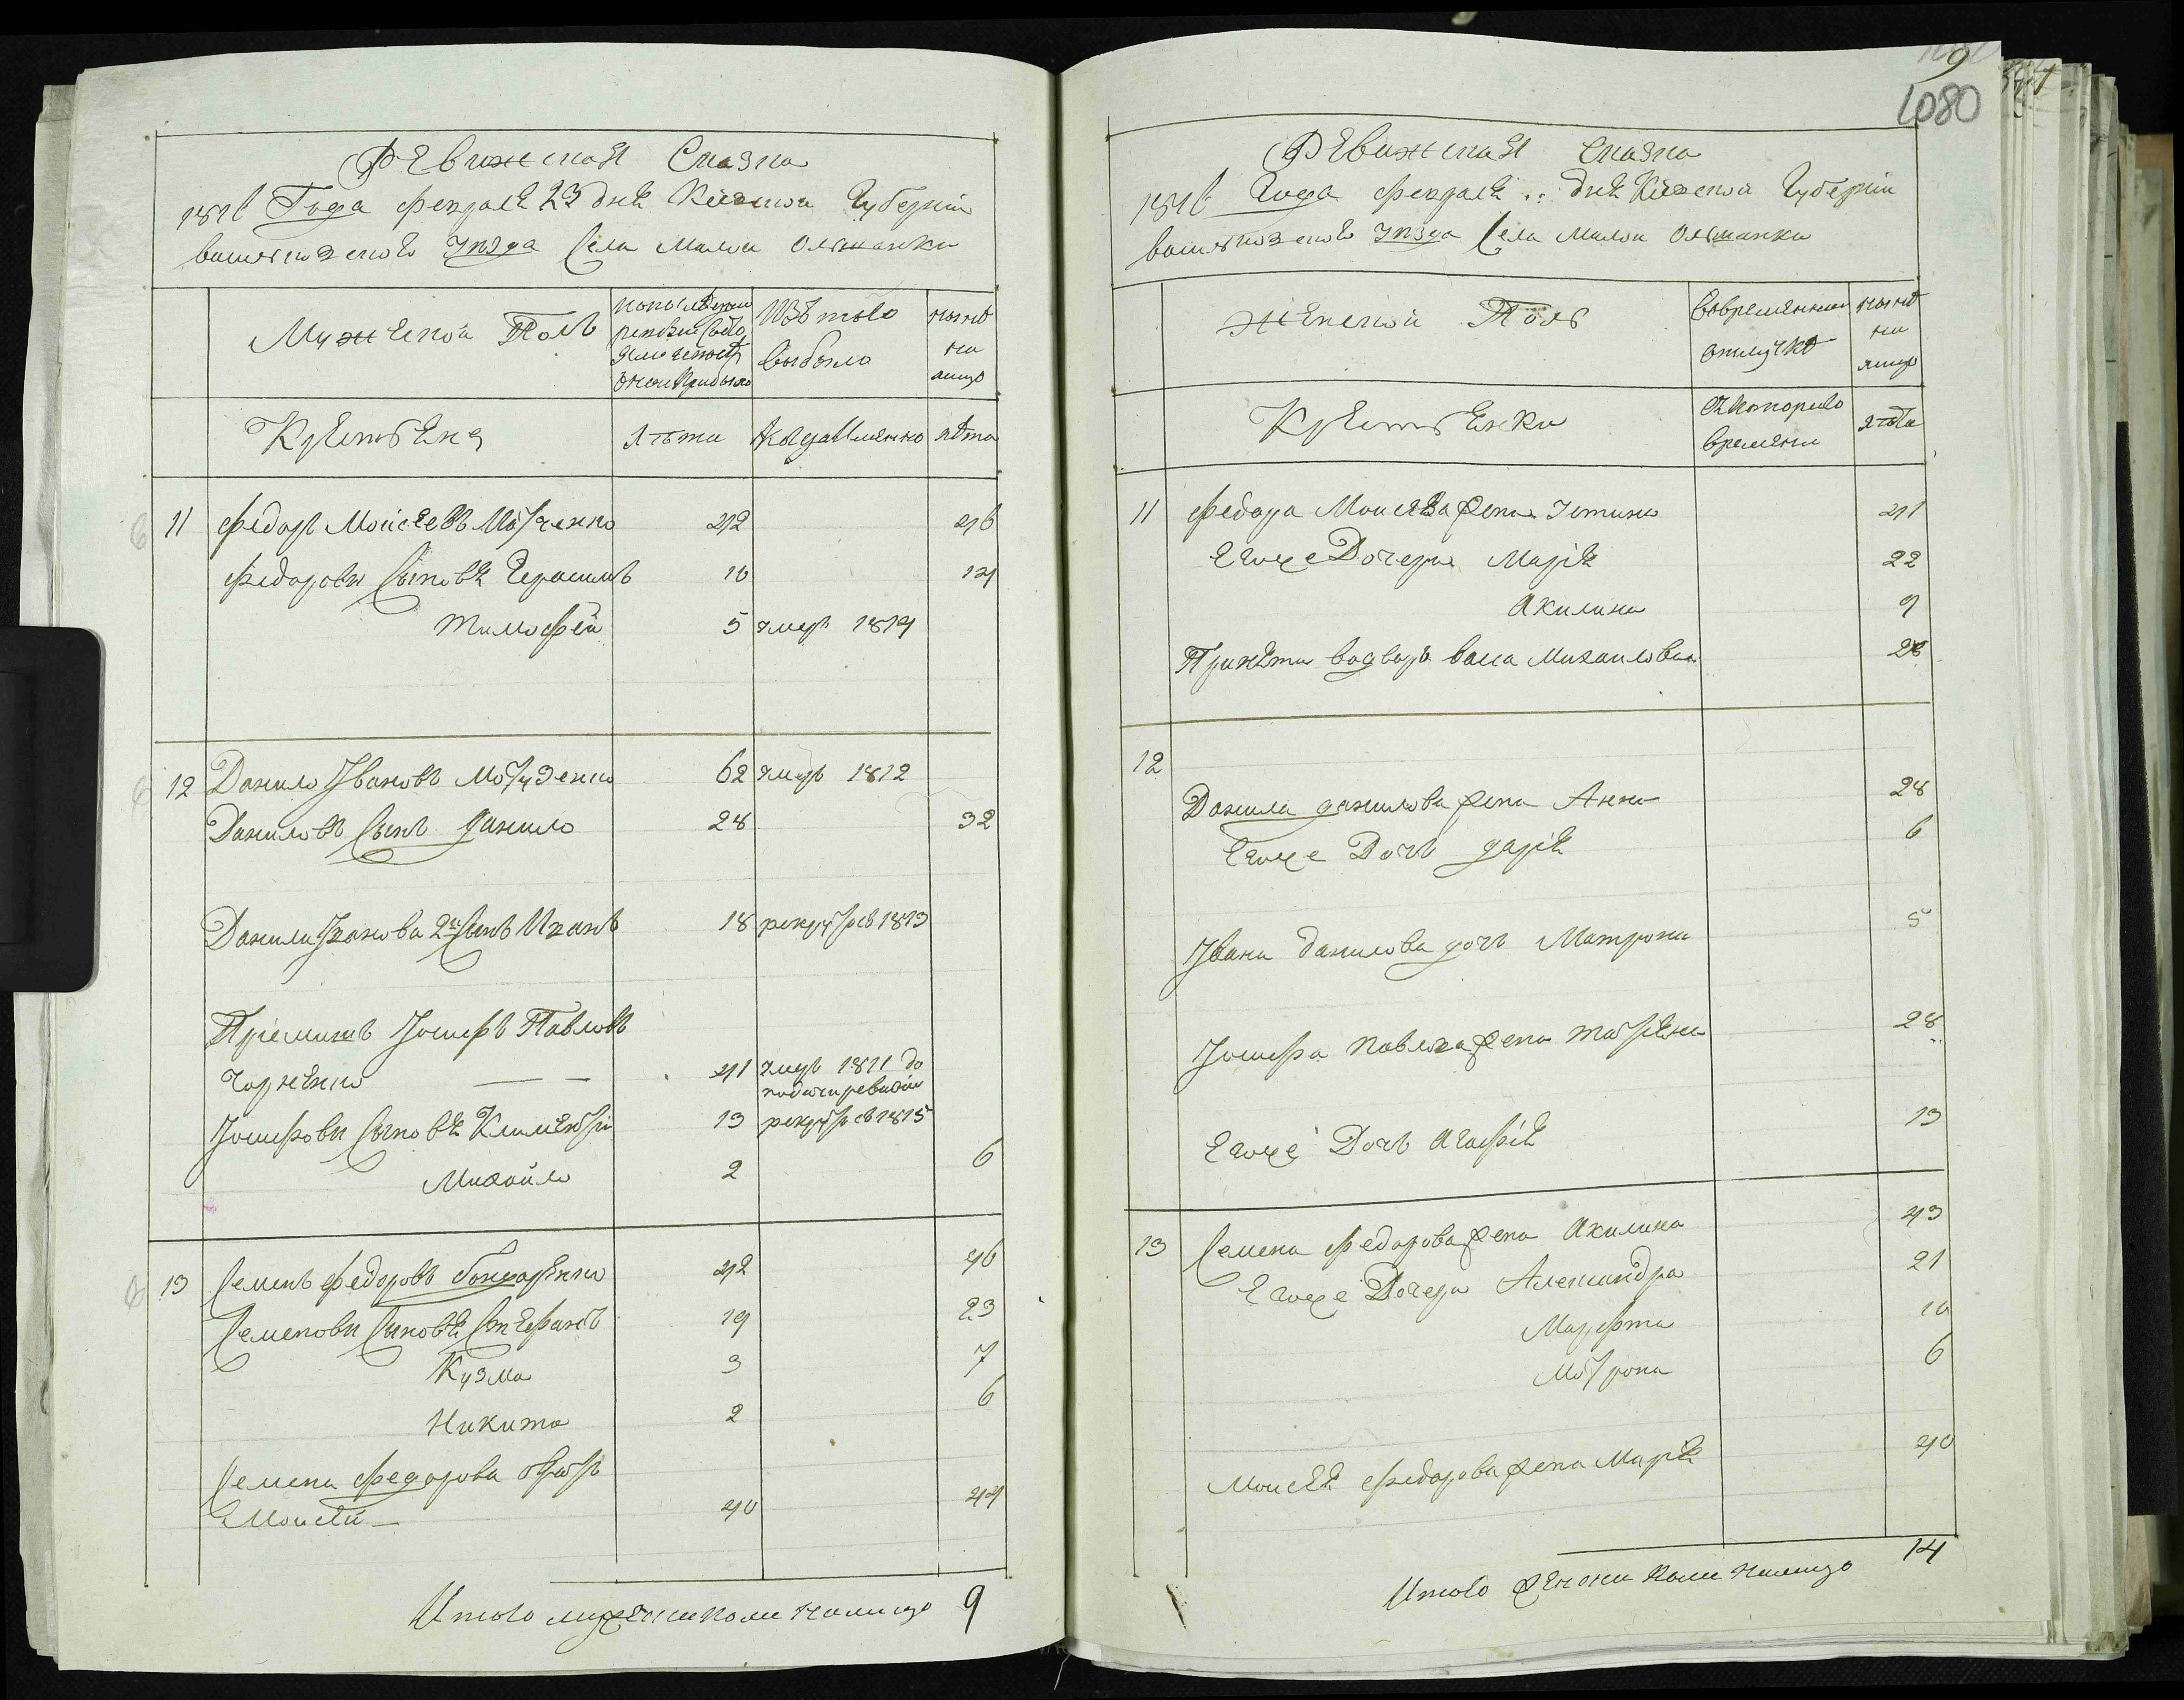 Ревижская Сказка
1816 Года февраля 23 дня Киевской Губернии
васильковского уезда Села Малой Ольшанки
Мужеской Полъ
По последней ревизии состояло и после оной прибыло
Изъ того выбыло
ныне на лицо
Крестьяне
лета
когда Именно
лета
11 Федоръ Моисеевъ Мотченко 42 46
Федоровы Сыновя Герасимъ 10 14
Тимофей 5 умеръ 1814
12 Данило Ивановъ 62 умеръ 1812
Даниловъ Сынъ Данило 28 32
Данила Иванова 2й Сынъ Иванъ 18 рекрутъ въ 1813
Приемишъ Иосифъ Павловъ
Чорненко 41 умеръ 1811 до подачи ревизии
Иосифовы Сыновя Климентий 13 рекрутъ въ 1815
Михайло 2 6
13 Семенъ Федоровъ Бондаренко 42 46
Семеновы Сыновя Стефанъ 19 23
Кузма 3 7
Никита 2 6
Семена Федорова братъ
Моисей 40 44
Итого мужеска пола налицо 9
9
1080
Ревижская Сказка
1816 Года февраля .. дня Киевской Губернии
васильковского уезда Села Малой Ольшанки
Женской Полъ
Во временной отлучке
ныне на лицо
Крестьянки
Съ которого времени
лета
11 Федора Моисеева жена Устина 41
Егоже Дочери Мария 22
Акилина 9
Принята водворъ вдова Михайлова 28
12
Данила Данилова жена Анна 28
Егоже Дочь Дария 6
Ивана Данилова дочь Матрона 5
Иосифа Павлова жена Татияна 28
Егоже Дочь Агафия 13
13 Семена Федорова жена Акилина 43
Егоже Дочери Александра 21
Марфта 10
Мотрона 6
Моисея Федорова жена Мария 40
Итого женска пола налицо 14